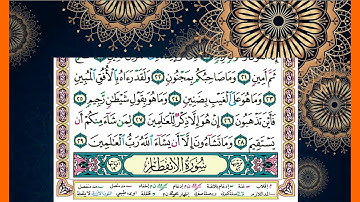 ثَمَّ أَمِينٍ ٢١ وَمَا صَاحِبُكُم بِمَجْنُونٍ ٢٢ وَلَقَدْ رَءَاهُ بِالْأُفُقِ الْمُبِينِ
٢٣ وَمَا هُوَ عَلَى الْغَيْبِ بِضَنِينٍ ٢٤ وَمَا هُوَ بِقَوْلِ شَيْطَانٍ رَّجِيمٍ ٢٥
فَأَيْنَ تَذْهَبُونَ ٢٦ إِنْ هُوَ إِلَّا ذِكْرٌ لِّلْعَالَمِينَ ٢٧ لِمَن شَاءَ مِنكُمْ أَن
يَسْتَقِيمَ ٢٨ وَمَا تَشَاءُونَ إِلَّا أَن يَشَاءَ اللَّهُ رَبُّ الْعَالَمِينَ ٢٩
سُورَةُ الِانفِطَارِ